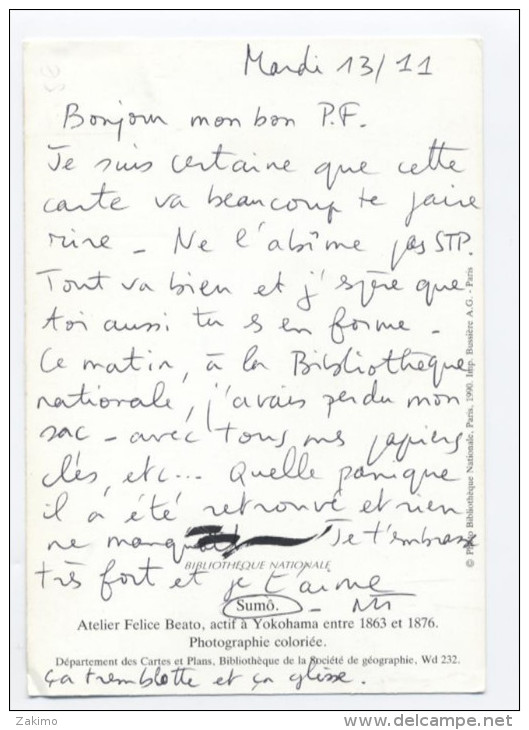 Mardi 13/11
Bonjour mon bon P.F.
Je suis certaine que cette
carte va beaucoup te faire
rire - Ne l'abîme pas STP.
Tout va bien et j'espère que
toi aussi tu es en forme -
Ce matin, à la Bibliothèque
nationale, j'avais perdu mon
sac - avec tous mes papiers
clés, etc... Quelle panique
il a été retrouvé et rien
ne manquait Je t'embrasse
BIBLIOTHÈQUE NATIONALE
très fort et je t'aime
Sumô.
Atelier Felice Beato, actif à Yokohama entre 1863 et 1876.
Photographie coloriée.
Département des Cartes et Plans, Bibliothèque de la Société de géographie, Wd 232.
ça tremblotte et ça glisse.
© Photo Bibliothèque Nationale, Paris, 1990. Imp. Bussière A.G. - Paris
Zakimo
www.delcampe.net